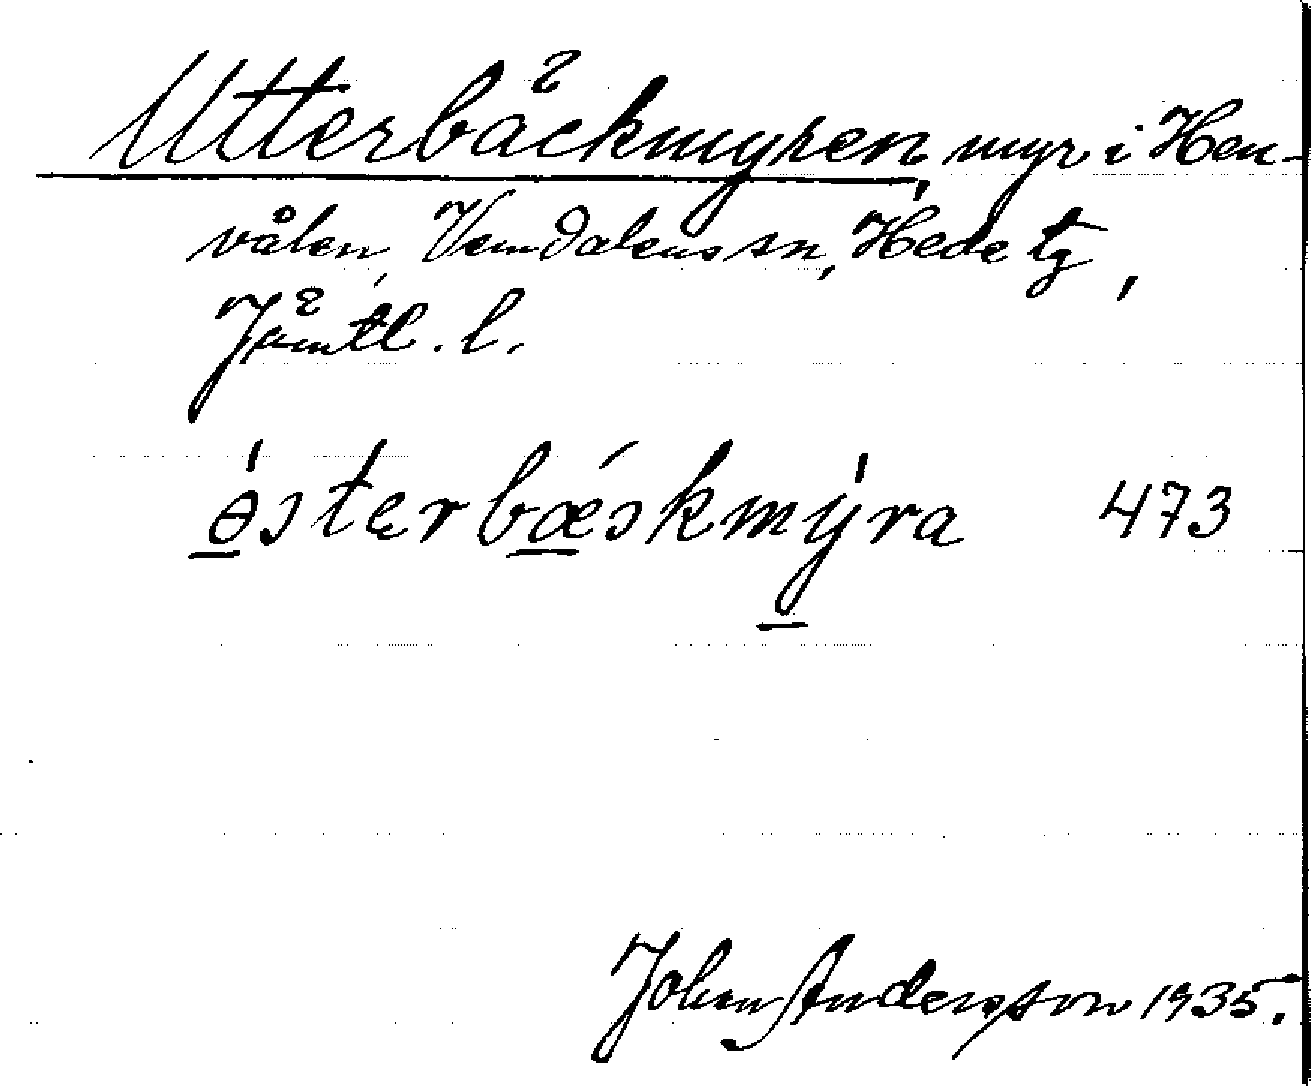 Utterbäckmyren, myr i Hen-
vålen, Vemdalens sn, Hede tg,
Jämtl. l.
ɵ́stęrbǽskmýra 473
Johan Andersson 1935.